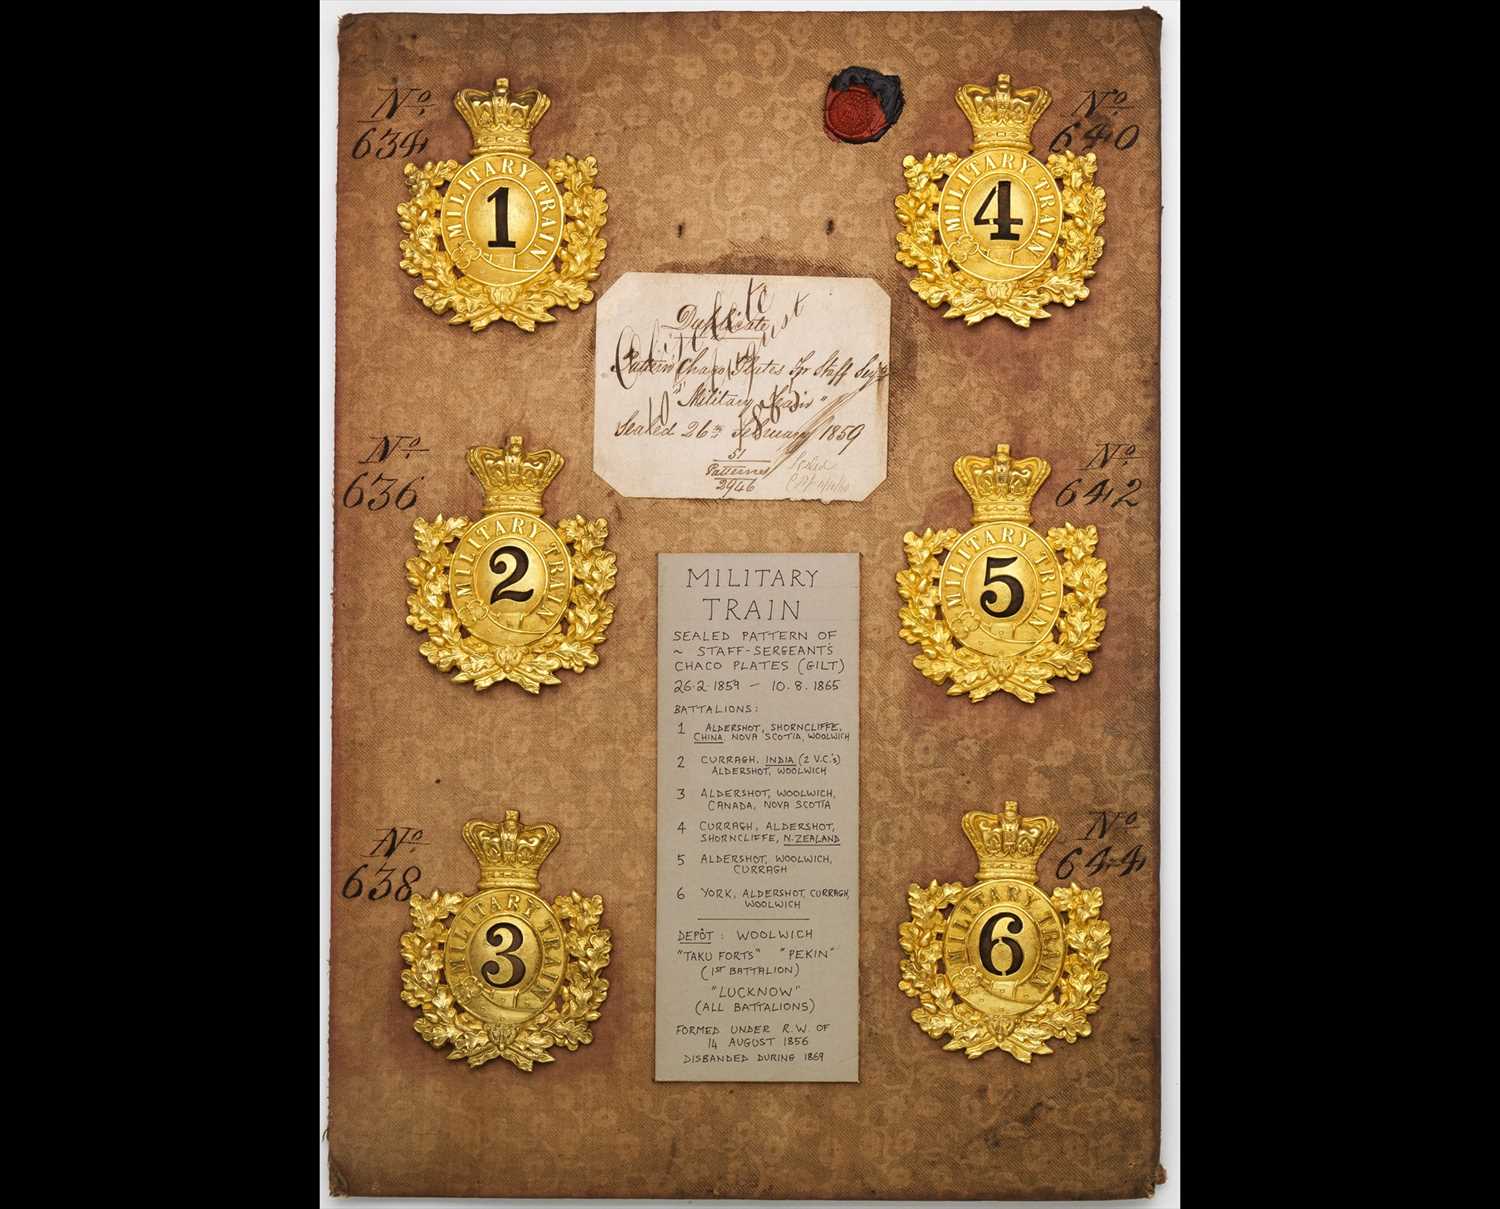 No.
634
MILITARY TRAIN
1
No.
640
MILITARY TRAIN
4
Duplicate
Obsolete
Pattern Chaco Plates for Staff Serjts
"Military Train"
Sealed 26th February 1859
10 August 1865
51
Patterns
2946
Sealed
No.
636
MILITARY TRAIN
2
No.
642
MILITARY TRAIN
5
No.
638
MILITARY TRAIN
3
No.
644
MILITARY TRAIN
6
MILITARY
TRAIN
SEALED PATTERN OF
~ STAFF-SERGEANT'S
CHACO PLATES (GILT)
26.2.1859 – 10.8.1865
BATTALIONS:
1 ALDERSHOT, SHORNCLIFFE,
CHINA, NOVA SCOTIA, WOOLWICH
2 CURRAGH, INDIA (2 V.C.'s)
ALDERSHOT, WOOLWICH
3 ALDERSHOT, WOOLWICH,
CANADA, NOVA SCOTIA
4 CURRAGH, ALDERSHOT,
SHORNCLIFFE, N.ZEALAND
5 ALDERSHOT, WOOLWICH,
CURRAGH
6 YORK, ALDERSHOT, CURRAGH,
WOOLWICH
DEPÔT: WOOLWICH
"TAKU FORTS" "PEKIN"
(1ST BATTALION)
"LUCKNOW"
(ALL BATTALIONS)
FORMED UNDER R.W. OF
14 AUGUST 1856
DISBANDED DURING 1869